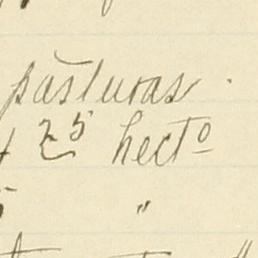 pasturas.
25 hectº
"